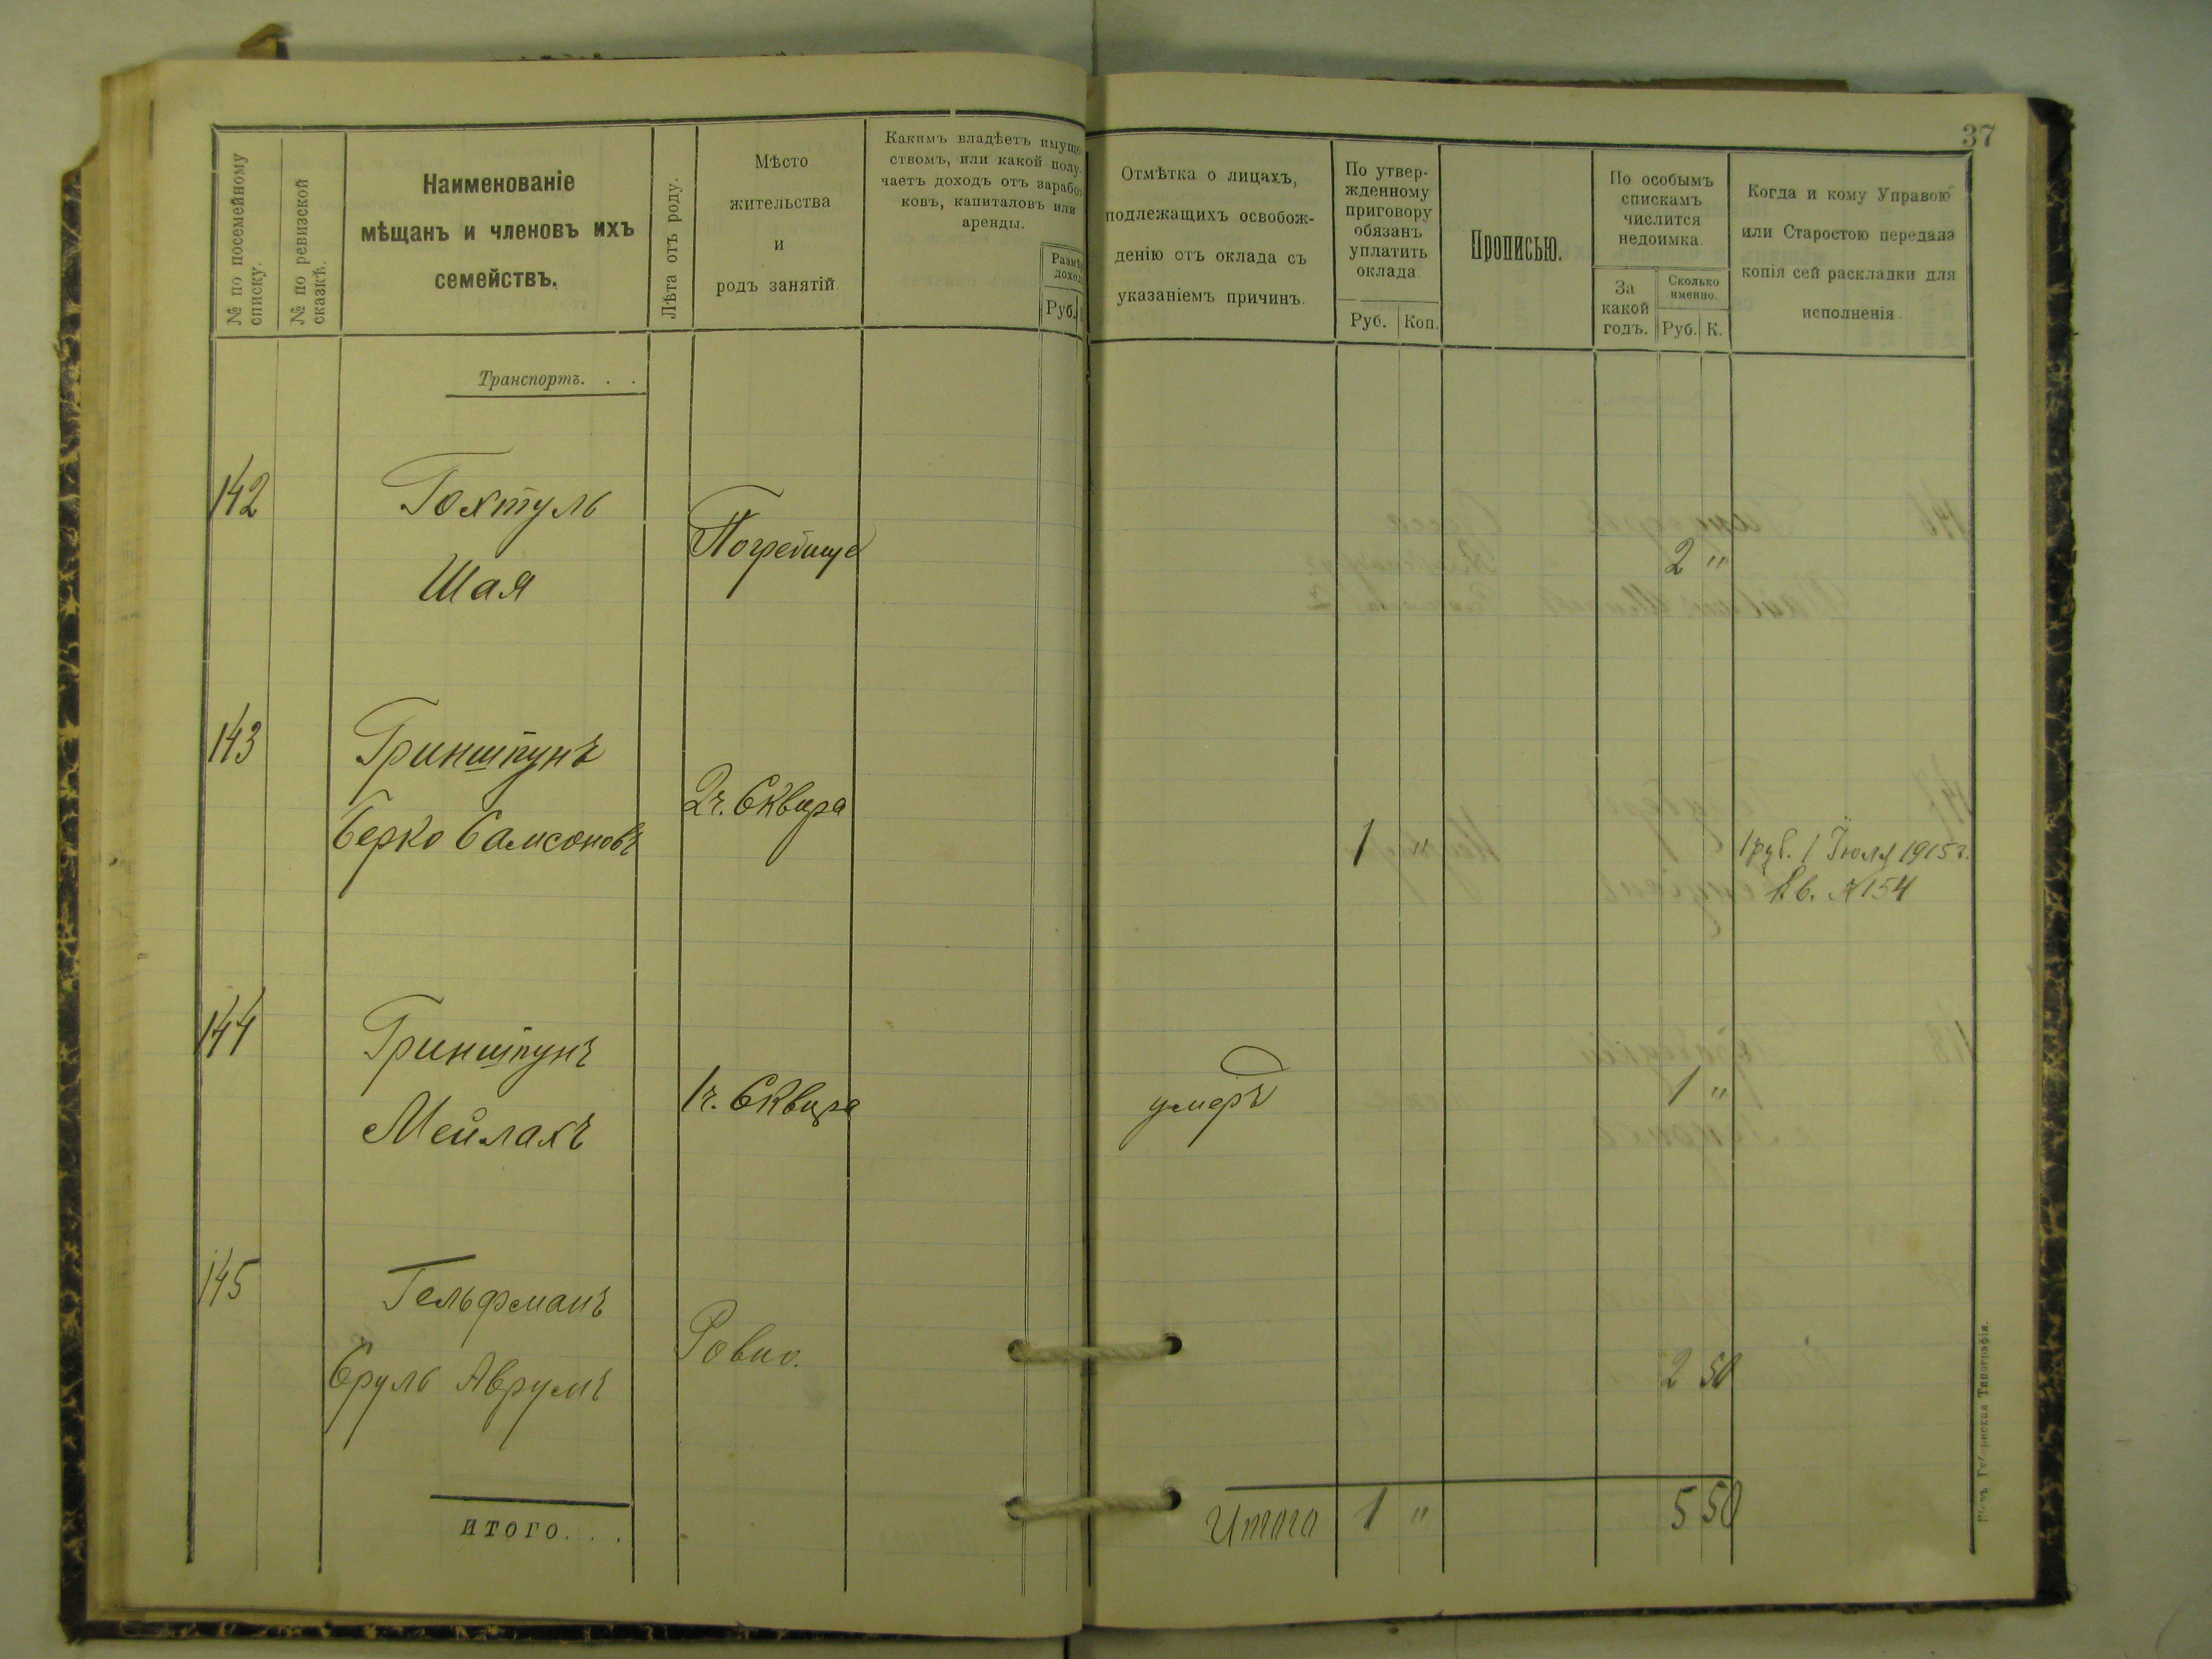 37
№ по посемейному
списку.
№ по ревизской
сказкѣ.
Наименованіе
мѣщанъ и членовъ ихъ
семействъ.
Лѣта отъ роду.
Мѣсто
жительства
и
родъ занятій.
Какимъ владѣетъ имуще-
ствомъ, или какой полу-
чаетъ доходъ отъ заработ-
ковъ, капиталовъ или
аренды.
Руб.
Отмѣтка о лицахъ,
подлежащихъ освобож-
денію отъ оклада съ
указаніемъ причинъ.
По утвер-
жденному
приговору
обязанъ
уплатить
оклада.
Руб. Коп.
Прописью.
По особымъ
спискамъ
числится
недоимка.
За
какой
годъ.
Сколько
именно.
Руб. К.
Когда и кому Управою
или Старостою передана
копія сей раскладки для
исполненія.
Транспортъ. . .
142 Гохтуль
Шая
Погребище
2 "
143 Гриншпунъ
Берко Самсоновъ
2ч. Сквира
1 "
1 руб. 1 Іюля 1915 г.
Кв. № 154
144 Гриншпунъ
Мейлахъ
1ч. Сквира
умеръ
1 "
145 Гельфманъ
Сруль Аврумъ
Ровно.
2 50
ИТОГО. . .
Итого 1 " 5 50
Губернская Типографія.